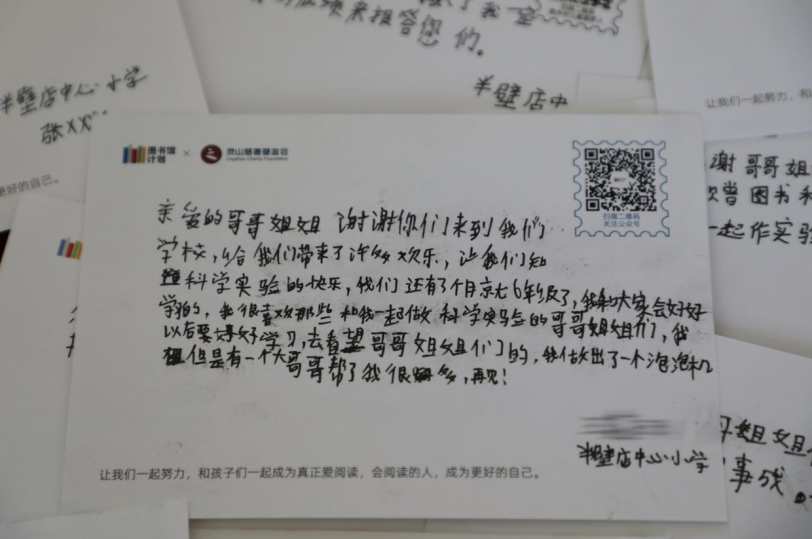 来报答您
们。
半壁店中
半壁店中心小学
张XX
更好的自己。
让我们一起努力，和
图书馆
计划
×
灵山慈善基金会
Lingshan Charity Foundation
扫描二维码
关注公众号
亲爱的哥哥姐姐 谢谢你们来到我们
学校，给我们带来了许多欢乐，让我们知
科学实验的快乐，我们还有了个月就七6年级了，我和大家会好好
学的，我很喜欢那些和我一起做科学实验的哥哥姐姐们，我
以后要好好学习，去看望哥哥姐姐们的，我做出了一个泡泡机
但是有一个大哥哥帮了我很多，再见！
半壁店中心小学
让我们一起努力，和孩子们一起成为真正爱阅读，会阅读的人，成为更好的自己。
谢哥哥姐
欢尝图书和
一起作实验
哥姐姐
事成。